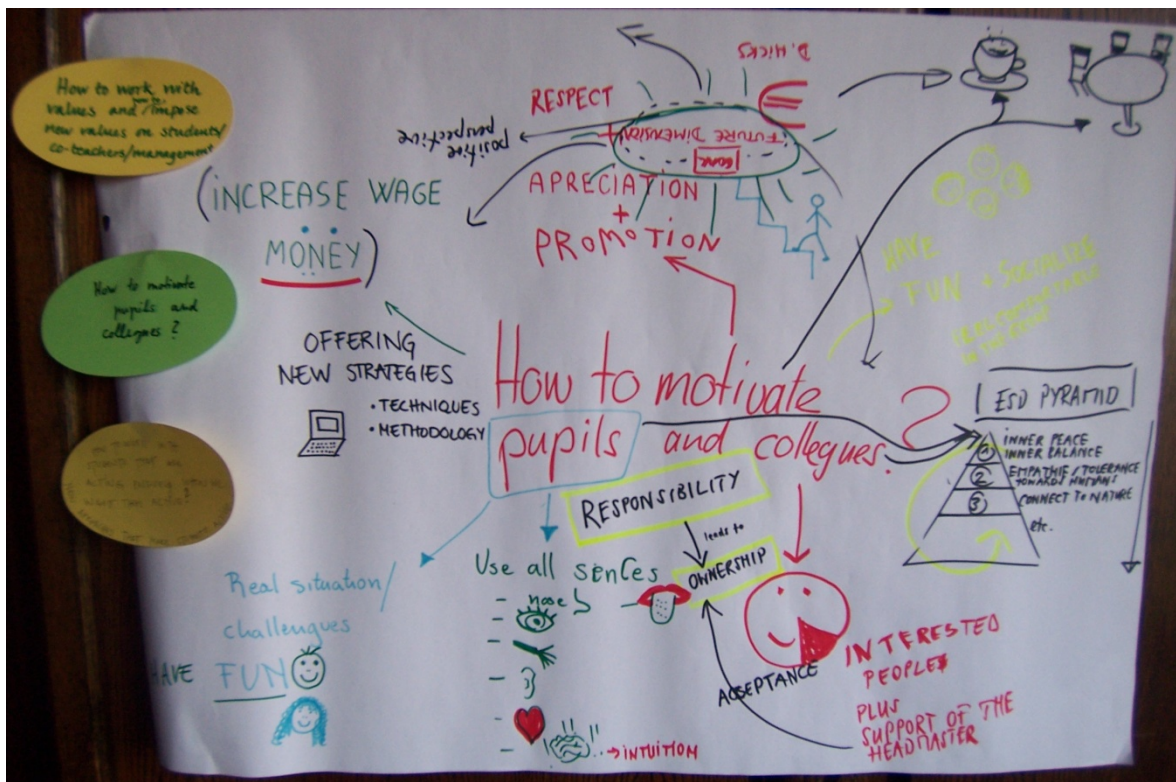 How to work with
values and how to impose
new values on students/
co-teachers/management
How to motivate
pupils and
collegues?
RESPECT
D. HICKS
positive
perspective
FUTURE DIMENSION
APRECIATION
+
PROMOTION
(INCREASE WAGE
MONEY)
OFFERING
NEW STRATEGIES
• TECHNIQUES
• METHODOLOGY
HAVE
FUN + SOCIALIZE
How to motivate
pupils and collegues.?
ESD PYRAMID
① INNER PEACE
INNER BALANCE
② EMPATHIE/TOLERANCE
TOWARDS HUMANS
③ CONNECT TO NATURE
etc.
RESPONSIBILITY
leads to
OWNERSHIP
Real situation/
challengues
HAVE FUN
Use all sences
- nose
→ INTUITION
ACCEPTANCE
INTERESTED
PEOPLE
PLUS
SUPPORT OF THE
HEADMASTER